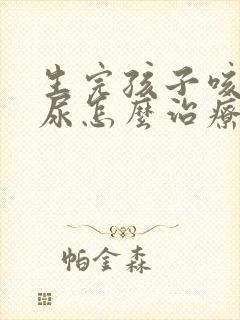 生完孩子咳
尿怎麼治療
帕金森